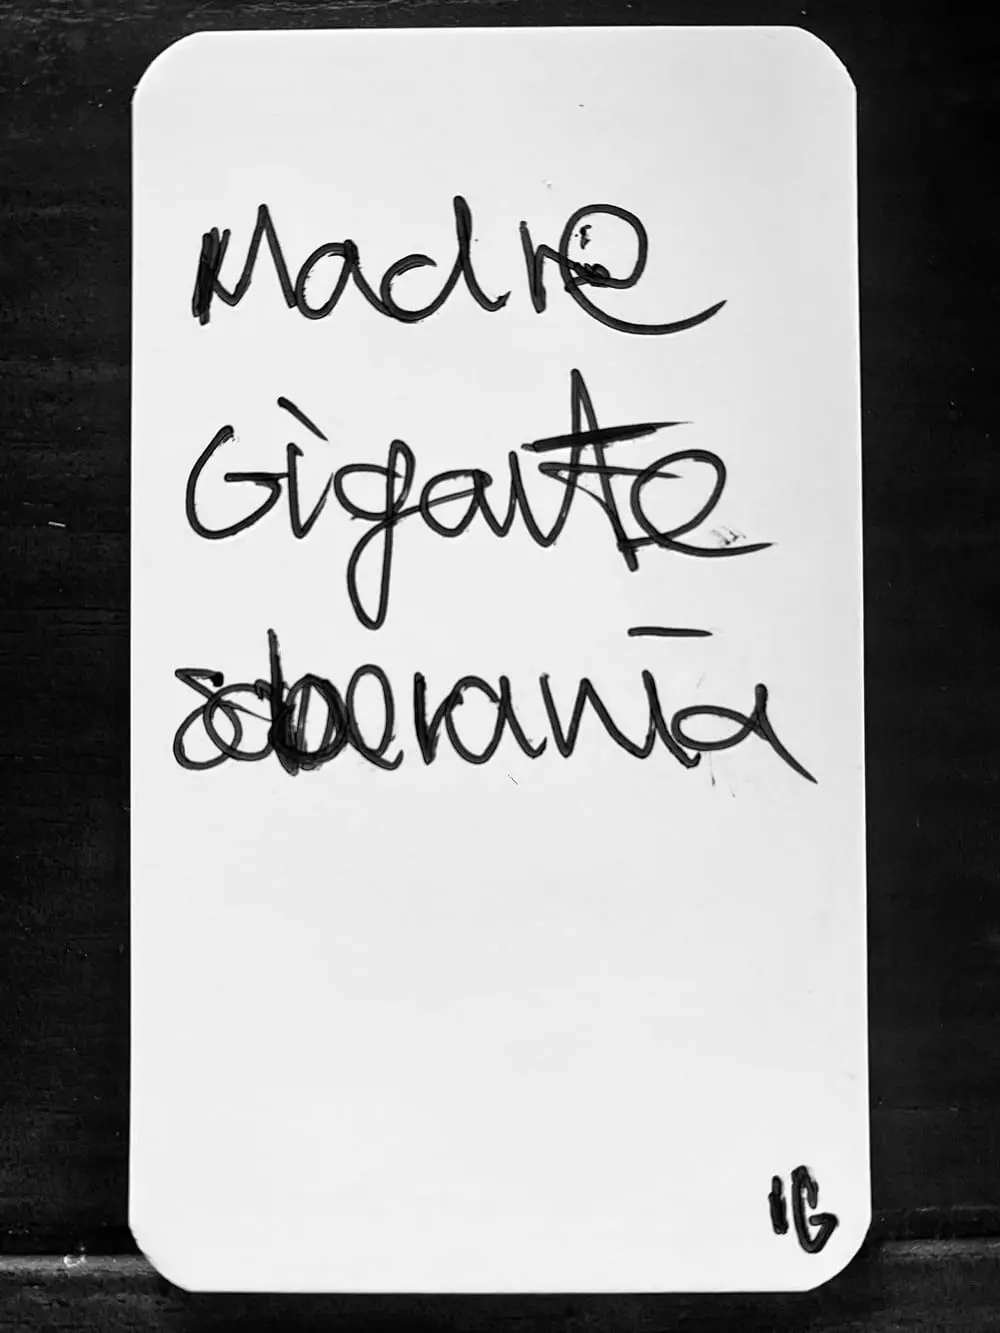 Madre
Gigante
soberanía
IG